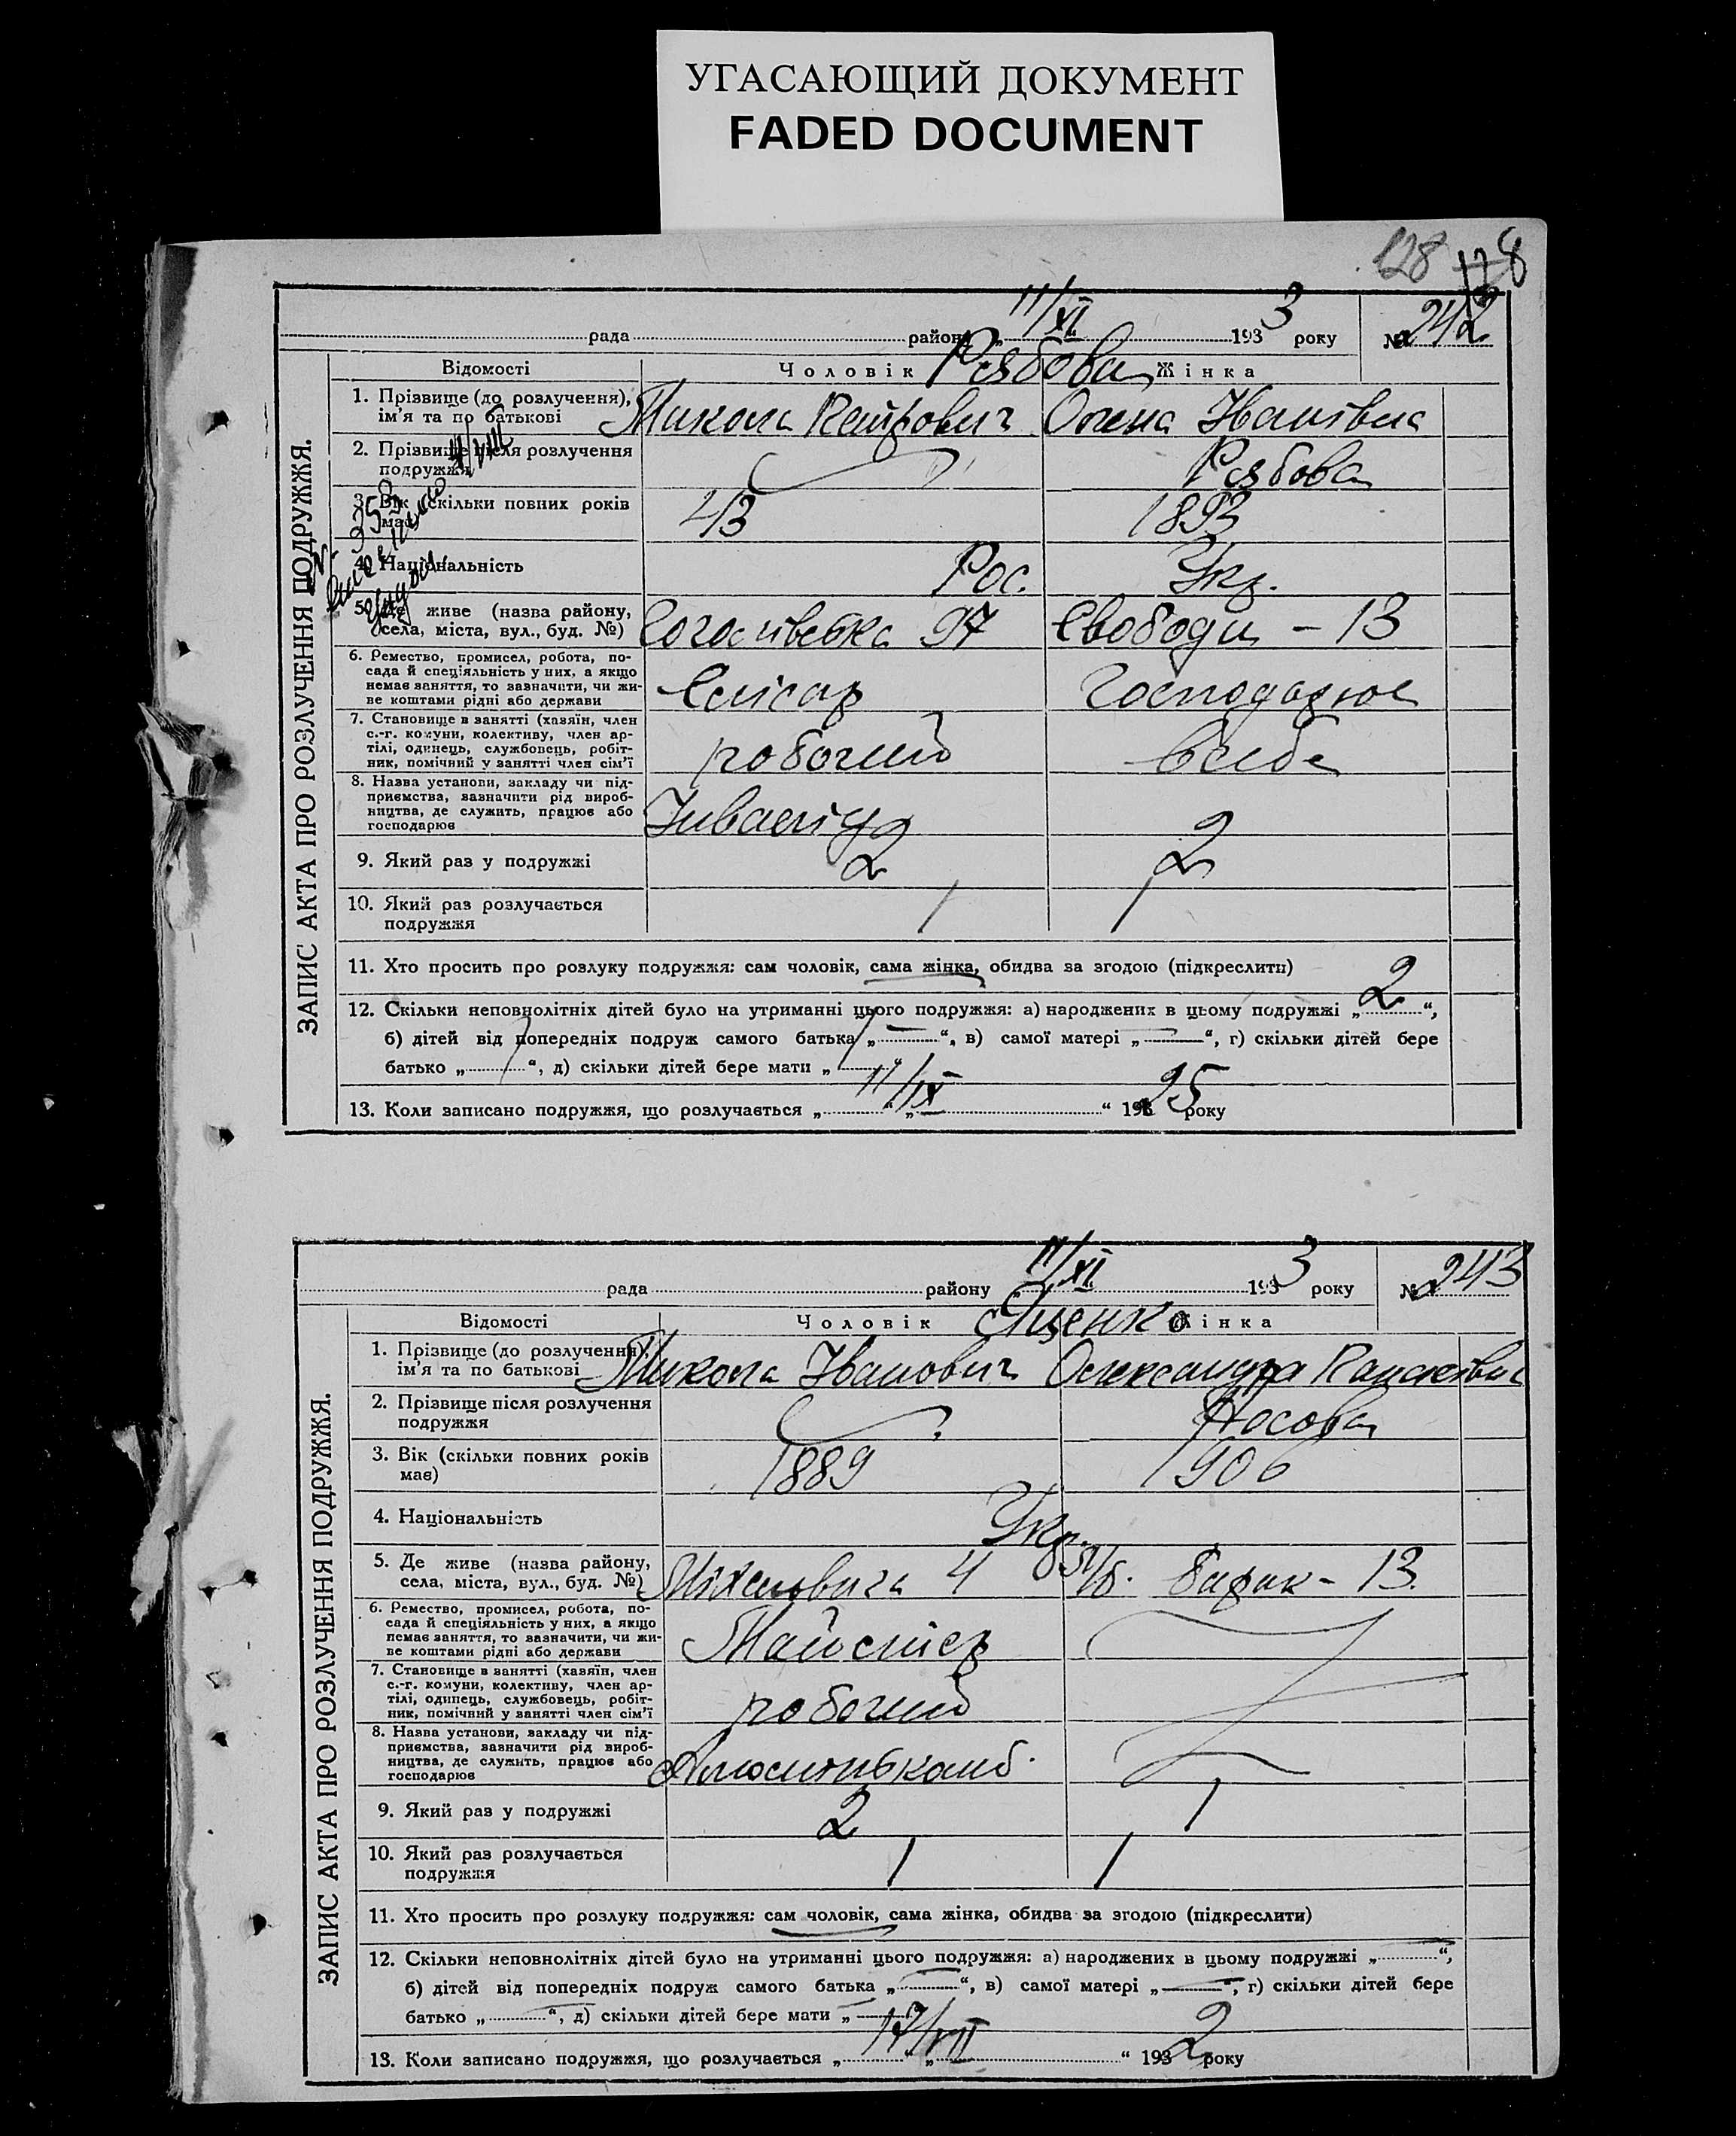 УГАСАЮЩИЙ ДОКУМЕНТ
FADED DOCUMENT
128
ЗАПИС АКТА ПРО РОЗЛУЧЕННЯ ПОДРУЖЖЯ.
рада району „11/XI 1933 року № 242
Відомості Чоловік Рябова Жінка
1. Прізвище (до розлучення), Микола Петрович Олена Іванівна
ім'я та по батькові
2. Прізвище після розлучення Рябова
подружжя
3. Вік (скільки повних років 43 1893
має)
4. Національність Рос. Укр.
5. Де живе (назва району, Гоголівська 97 Свободи - 13
села, міста, вул., буд. №)
6. Ремество, промисел, робота, по- Слісар Господарює
сада й спеціяльність у них, а якщо
немає заняття, то зазначити, чи жи-
ве коштами рідні або держави
7. Становище в занятті (хазяїн, член робочий вдома
с.-г. комуни, колективу, член ар-
тілі, одинець, службовець, робіт-
ник, помічний у занятті член сім'ї
8. Назва установи, закладу чи під- Інвалід
приємства, зазначити рід вироб-
ництва, де служить, працює або
господарює
9. Який раз у подружжі 2 2
10. Який раз розлучається 1 1
подружжя
11. Хто просить про розлуку подружжя: сам чоловік, сама жінка, обидва за згодою (підкреслити)
12. Скільки неповнолітніх дітей було на утриманні цього подружжя: а) народжених в цьому подружжі „2“,
б) дітей від попередніх подруж самого батька „—“, в) самої матері „—“, г) скільки дітей бере
батько „ “, д) скільки дітей бере мати „ “
13. Коли записано подружжя, що розлучається „11/IX“ 1925 року
ЗАПИС АКТА ПРО РОЗЛУЧЕННЯ ПОДРУЖЖЯ.
рада району „11/XI 1933 року № 243
Відомості Чоловік Яценко Жінка
1. Прізвище (до розлучення), Микола Іванович Олександра
ім'я та по батькові
2. Прізвище після розлучення Носова
подружжя
3. Вік (скільки повних років 1889 1906
має)
4. Національність Укр.
5. Де живе (назва району, 4 барак - 13.
села, міста, вул., буд. №)
6. Ремество, промисел, робота, по- Майстер
сада й спеціяльність у них, а якщо
немає заняття, то зазначити, чи жи-
ве коштами рідні або держави
7. Становище в занятті (хазяїн, член робочий
с.-г. комуни, колективу, член ар-
тілі, одинець, службовець, робіт-
ник, помічний у занятті член сім'ї
8. Назва установи, закладу чи під-
приємства, зазначити рід вироб-
ництва, де служить, працює або
господарює
9. Який раз у подружжі 2 1
10. Який раз розлучається 1 1
подружжя
11. Хто просить про розлуку подружжя: сам чоловік, сама жінка, обидва за згодою (підкреслити)
12. Скільки неповнолітніх дітей було на утриманні цього подружжя: а) народжених в цьому подружжі „—“,
б) дітей від попередніх подруж самого батька „—“, в) самої матері „—“, г) скільки дітей бере
батько „—“, д) скільки дітей бере мати „—“
13. Коли записано подружжя, що розлучається „17/VII“ 1932 року